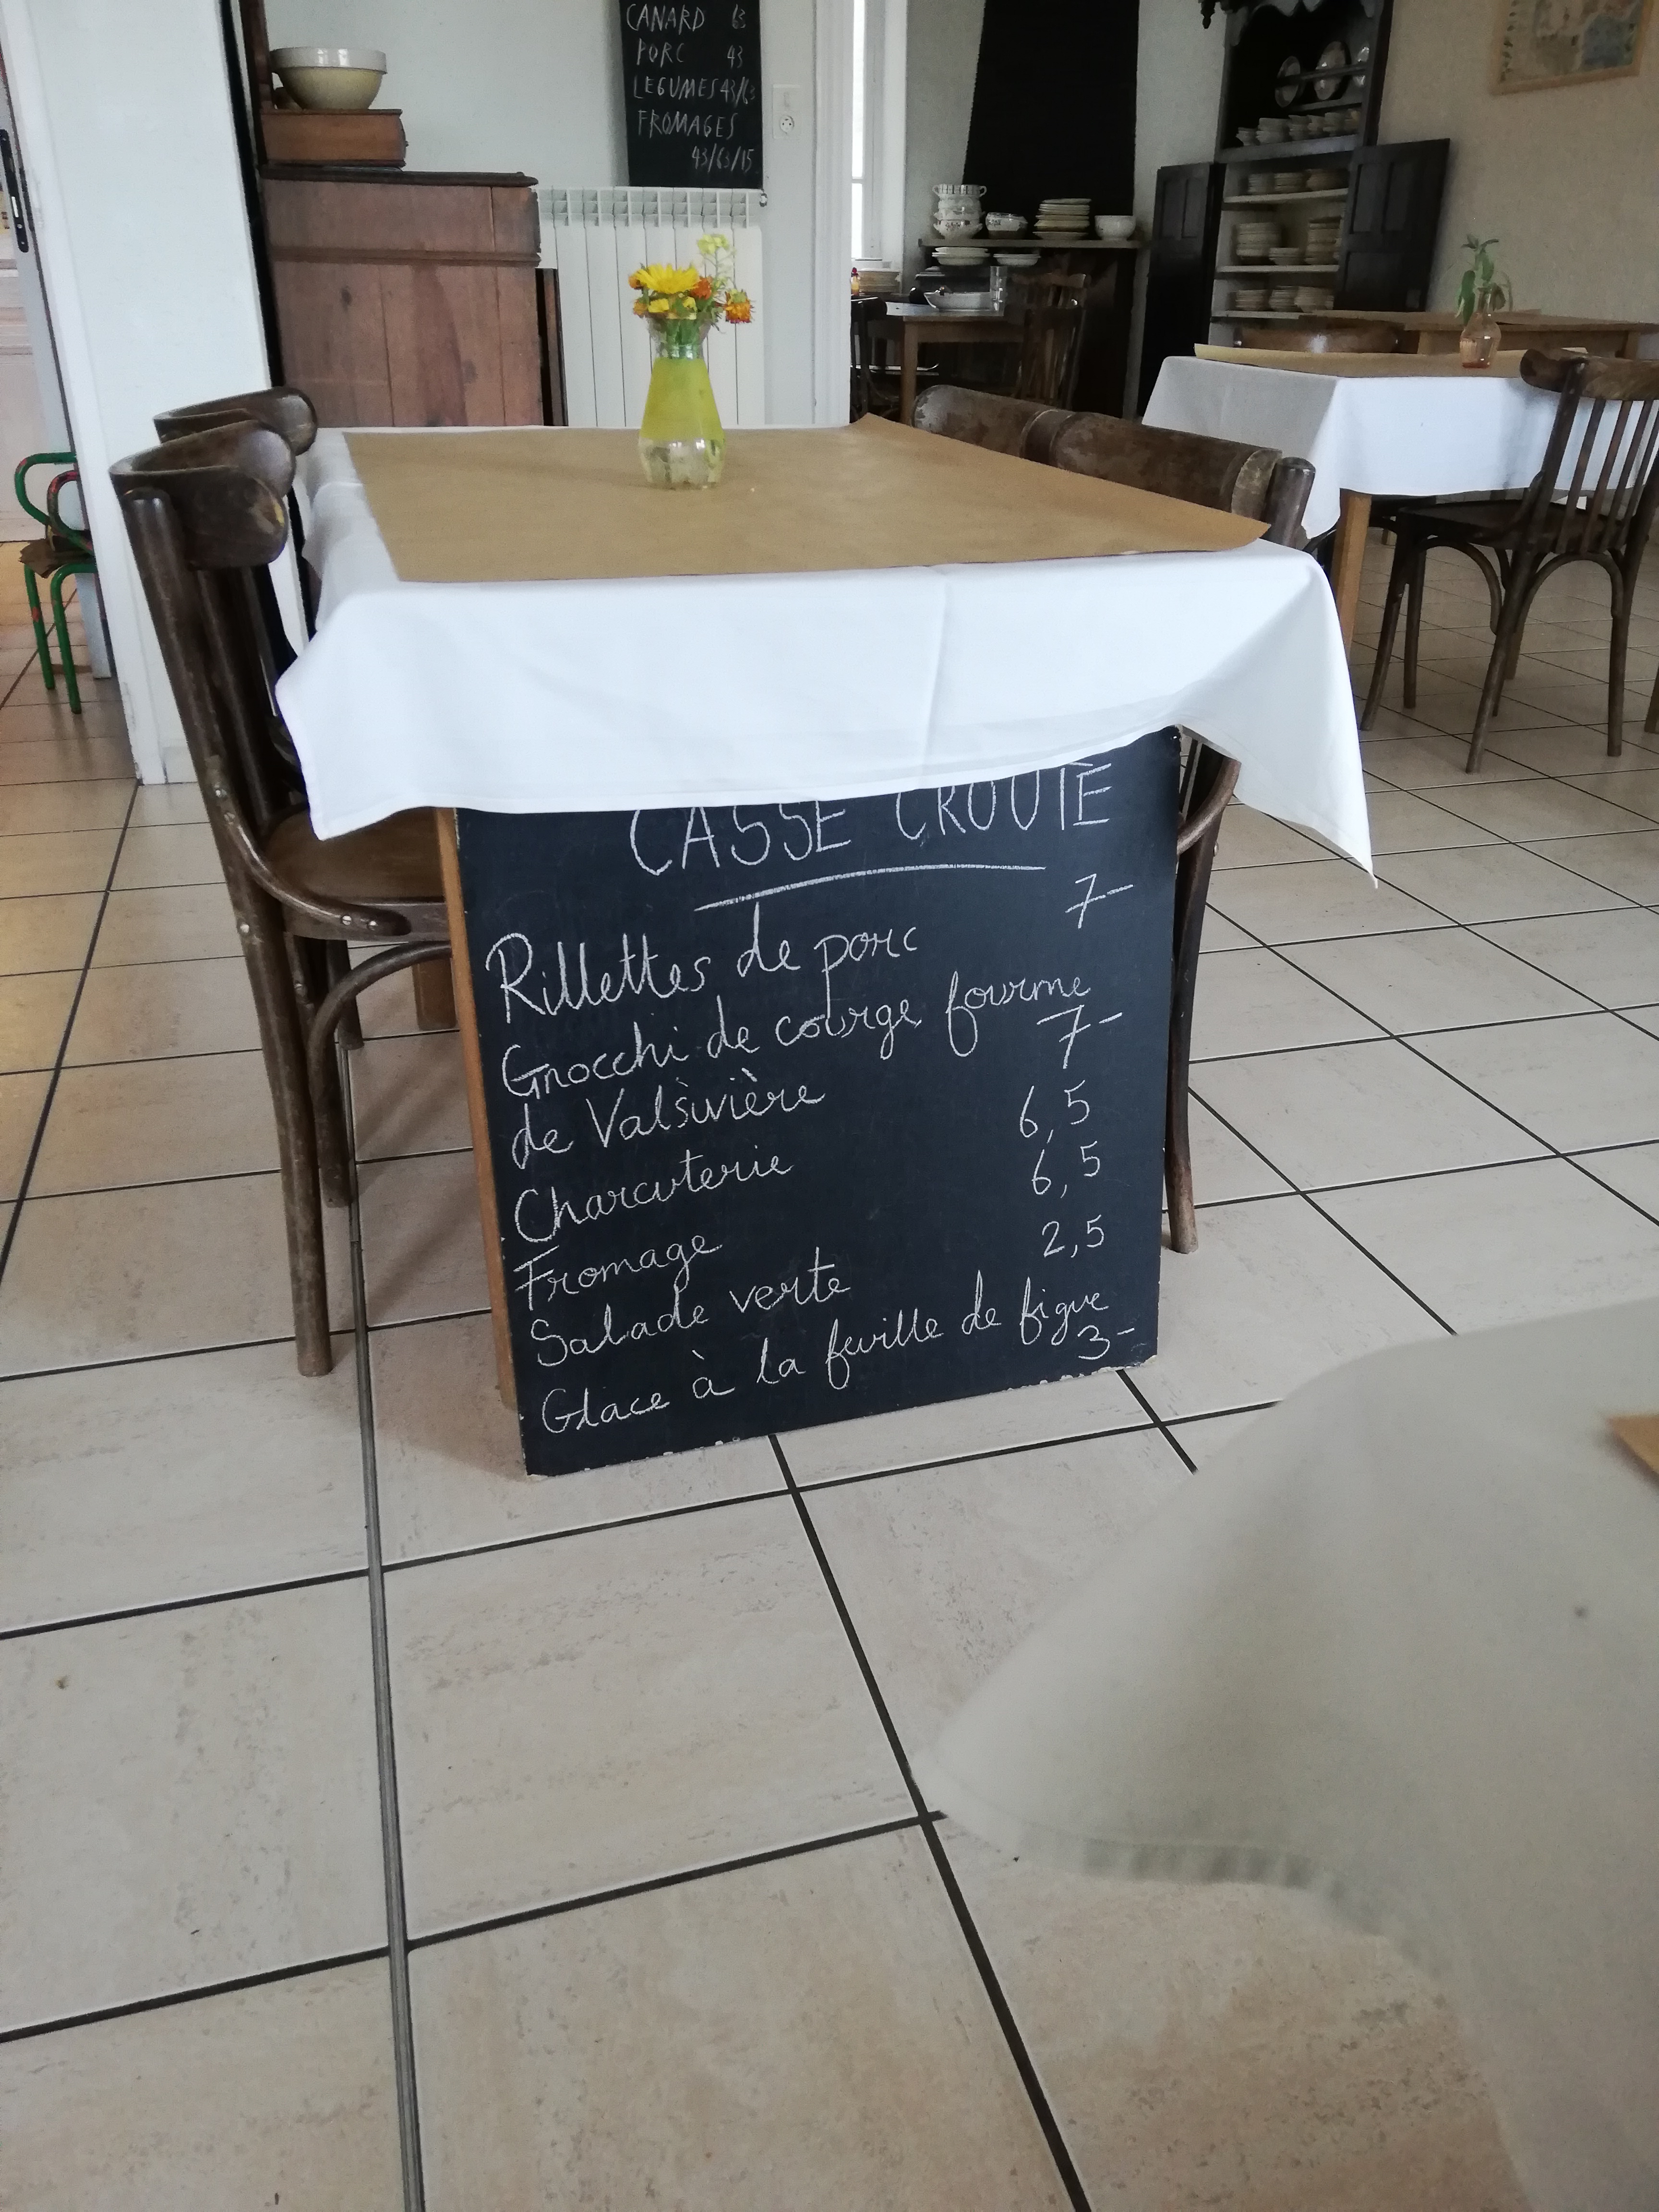 CANARD 63
PORC 43
LEGUMES 43/63
FROMAGES
43/63/15
CASSE CROUTE
7-
Rillettes de porc
Gnocchi de courge fourme
de Valsivière 7-
Charcuterie 6,5
Fromage 6,5
Salade verte 2,5
Glace à la feuille de figue
3-